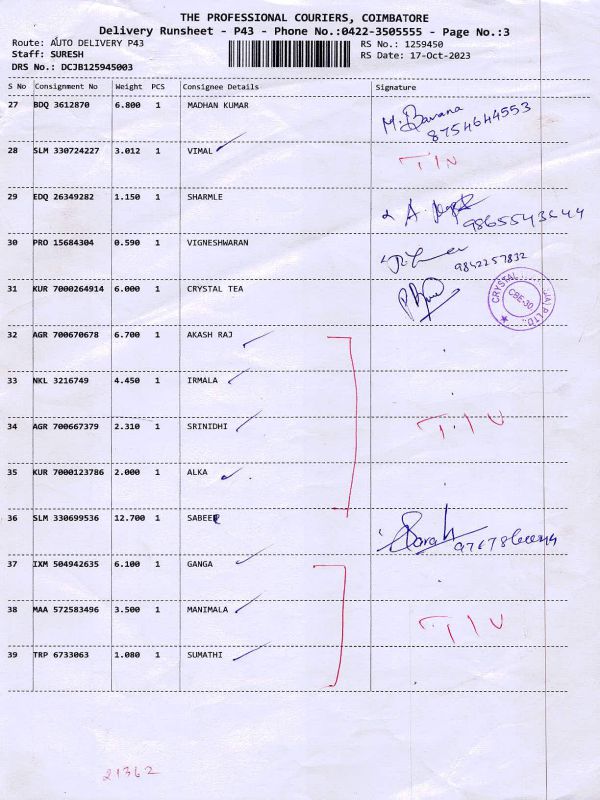 THE PROFESSIONAL COURIERS, COIMBATORE
Delivery Runsheet - P43 - Phone No.:0422-3505555 - Page No.:3
Route: AUTO DELIVERY P43 RS No.: 1259450
Staff: SURESH RS Date: 17-Oct-2023
DRS No.: DCJB125945003
S No Consignment No Weight PCS Consignee Details Signature
27 BDQ 3612870 6.800 1 MADHAN KUMAR
8754644553
28 SLM 330724227 3.012 1 VIMAL
29 EDQ 26349282 1.150 1 SHARMLE
30 PRO 15684304 0.590 1 VIGNESHWARAN
9842257832
31 KUR 7000264914 6.000 1 CRYSTAL TEA
CRYSTAL CBE-30 LTD
32 AGR 700670678 6.700 1 AKASH RAJ
33 NKL 3216749 4.450 1 IRMALA
34 AGR 700667379 2.310 1 SRINIDHI
35 KUR 7000123786 2.000 1 ALKA
36 SLM 330699536 12.700 1 SABEER
37 IXM 504942635 6.100 1 GANGA
38 MAA 572583496 3.500 1 MANIMALA
39 TRP 6733063 1.080 1 SUMATHI
21362